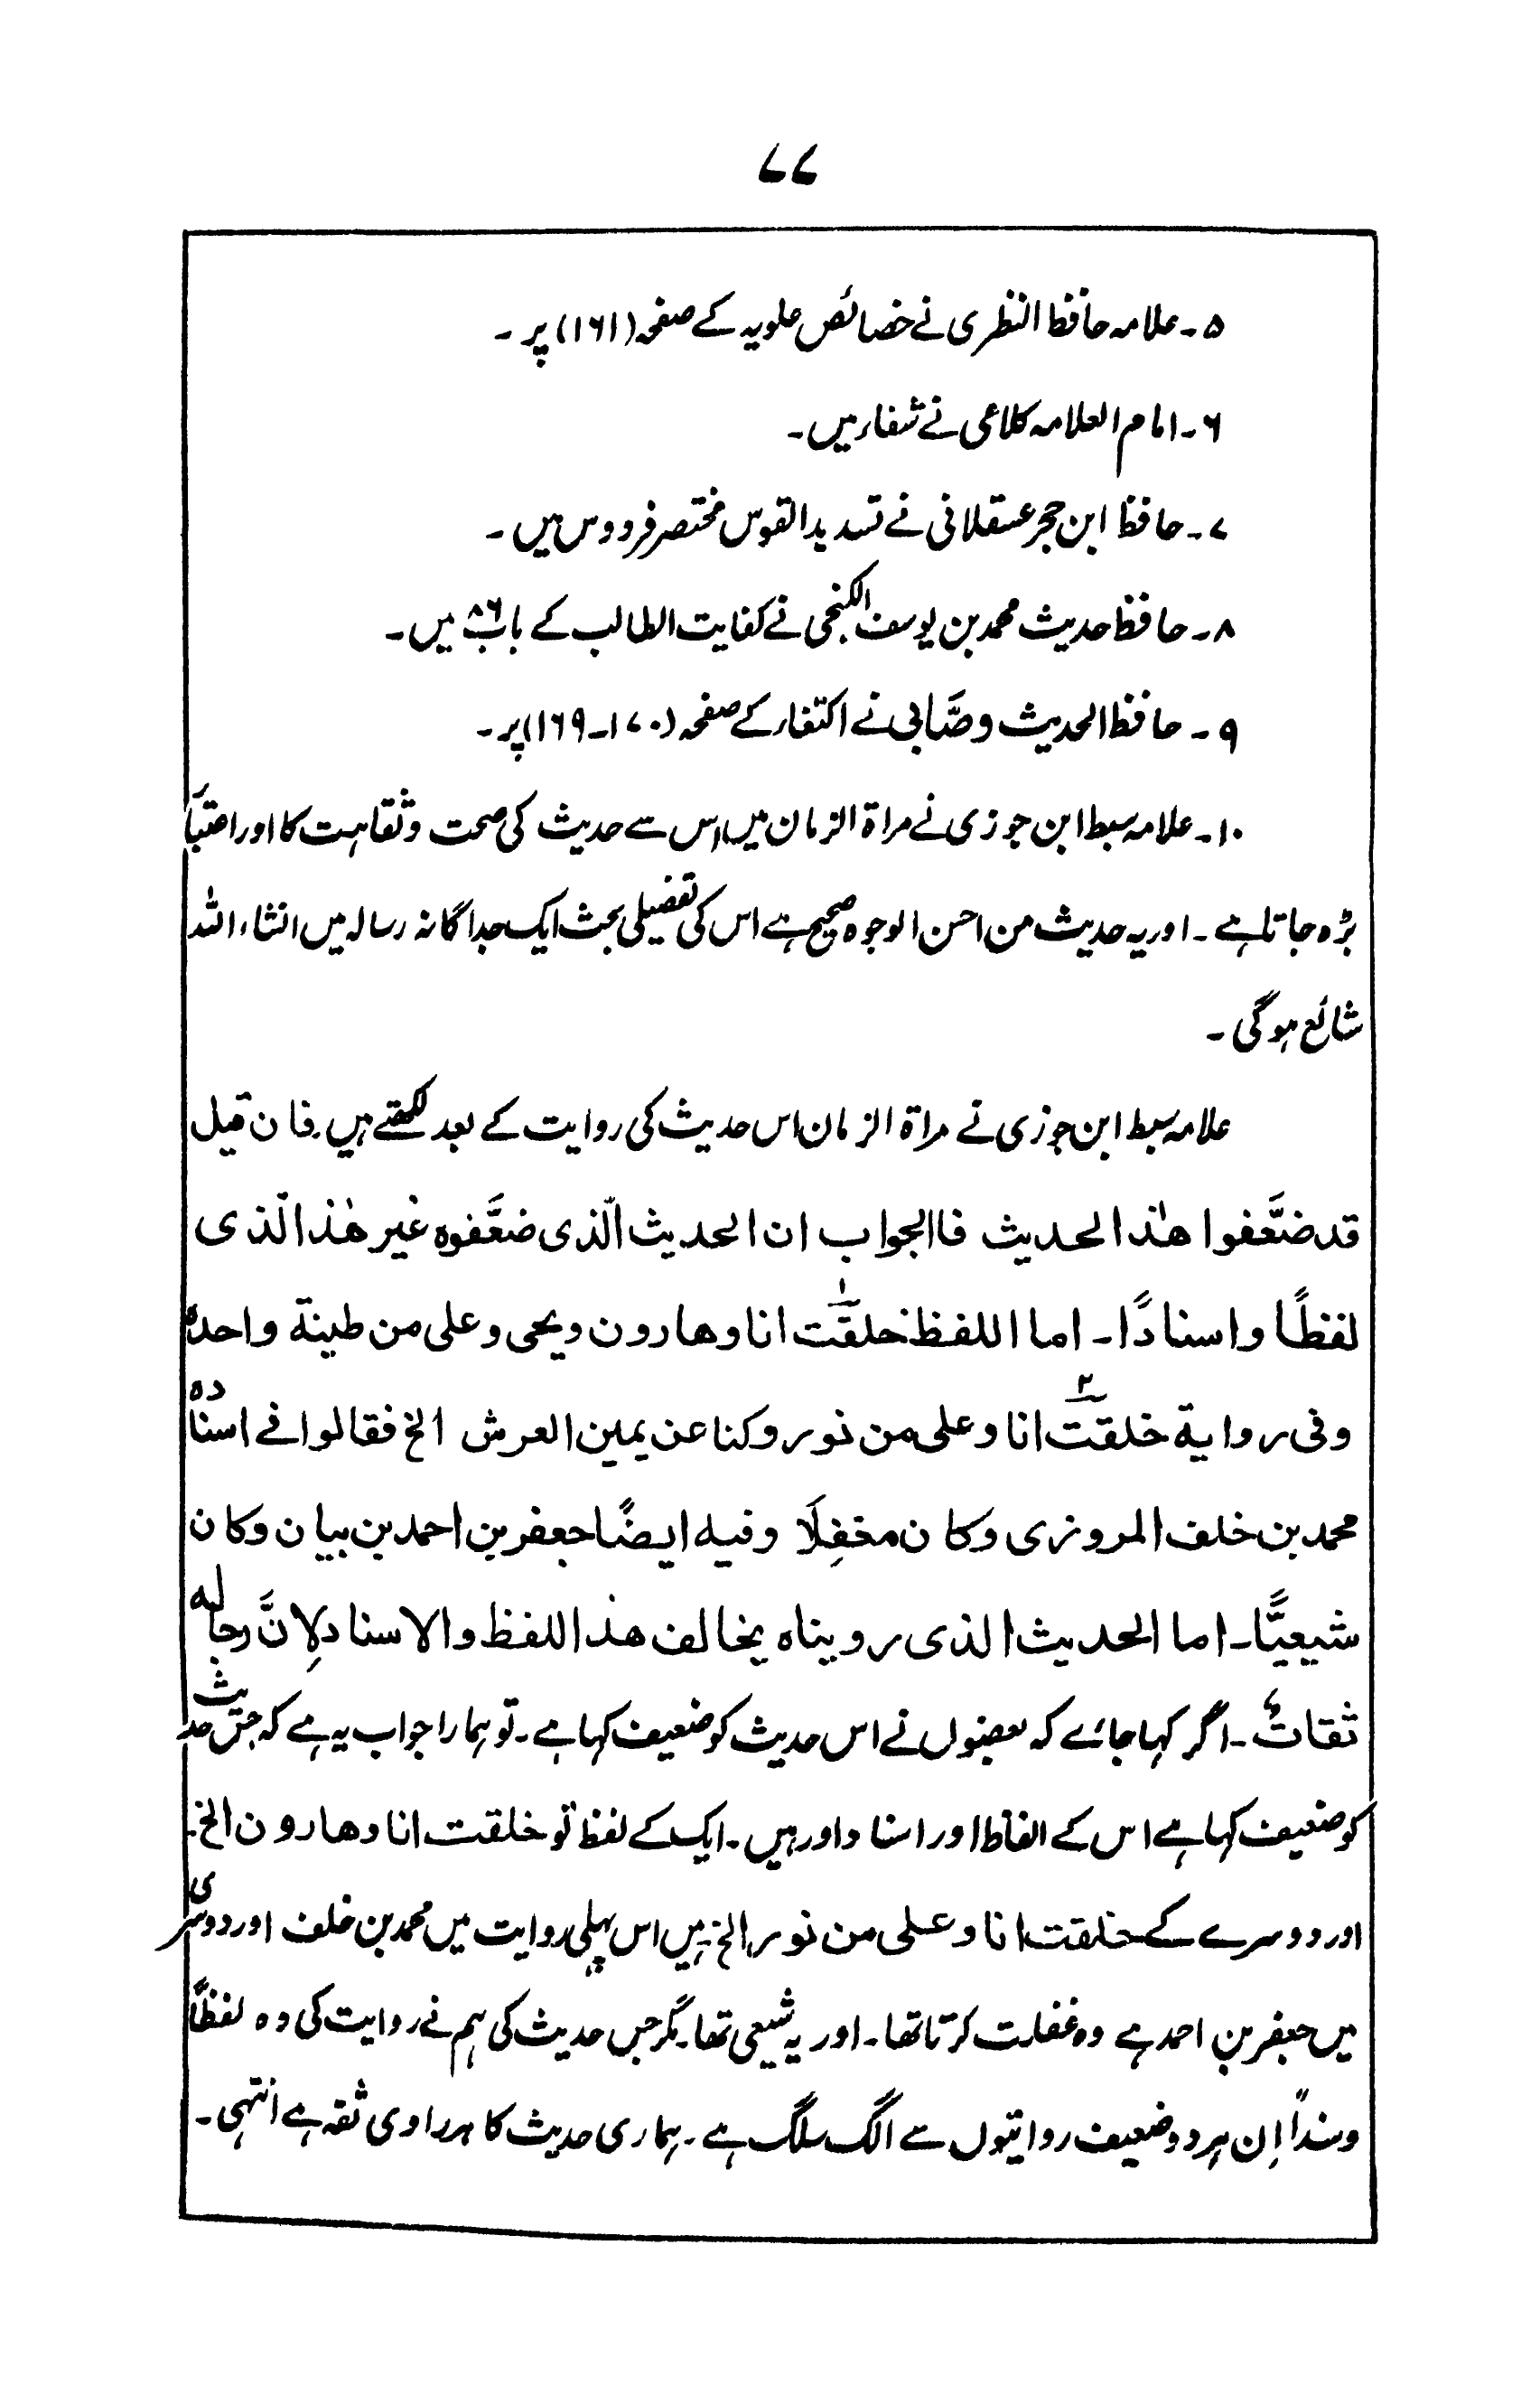 ۷۷
۵۔ علامہ حافظ النظری نے خصائص علویہ کے صفحہ (۱۶۱) پر۔
۶۔ امام العلامہ کلاعی نے شفاء میں۔
۷۔ حافظ ابن حجر عسقلانی نے تسدید القوس مختصر فردوس میں۔
۸۔ حافظ حدیث محمد بن یوسف الکنجی نے کفایت الطالب کے باب ۸۶ میں۔
۹۔ حافظ الحدیث وصَّابی نے اکتفاء کے صفحہ (۱۷۰۔۱۶۹) پر۔
۱۰۔ علامہ سبط ابن جوزی نے مراۃ الزمان میں، اس سے حدیث کی صحت وثقاہت کا اور اعتبار
بڑہ جاتا ہے۔ اور یہ حدیث من احسن الوجوہ صحیح ہے اس کی تفصیلی بحث ایک جداگانہ رسالہ میں انشاء اللہ
شائع ہوگی۔
علامہ سبط ابن جوزی نے مراۃ الزمان اس حدیث کی روایت کے بعد لکھتے ہیں۔ فان قیل
قد ضعَّفوا ھٰذا الحدیث فاالجواب ان الحدیث الّذی ضعَّفوہ غیر ھٰذا الّذی
لفظًا واسنادًا۔ اما اللفظ خلقت۱ انا وھارون ویحی وعلی من طینة واحدہ
وفی روایة خلقت۲ انا وعلی من نور وکنا عن یمین العرش الخ فقالوا فے اسنادہ
محمد بن خلف المروزی وکان مغفِلًا وفیہ ایضًا جعفر بن احمد بن بیان وکان
شیعیًّا۔ اما الحدیث الذی رویناہ یخالف ھذا اللفظ والاسناد لِانَّ رجالہ
ثقاتٌ۔ اگر کہا جائے کہ بعضوں نے اس حدیث کو ضعیف کہا ہے۔ تو ہمارا جواب یہ ہے کہ جس حدیث
کو ضعیف کہا ہے اس کے الفاظ اور اسناد اور ہیں۔ ایک کے لفظ تو خلقت انا وھارون الخ۔
اور دوسرے کے خلقت انا وعلی من نور الخ ہیں اس پہلی روایت میں محمد بن خلف اور دوسری
میں جعفر بن احمد ہے وہ غفلت کرتا تھا۔ اور یہ شیعی تھا۔ مگر جس حدیث کی ہم نے روایت کی وہ لفظًا
وسنداً اِن ہر دو ضعیف روایتوں سے الگ سلگ ہے۔ ہماری حدیث کا ہر راوی ثقہ ہے انتہی۔